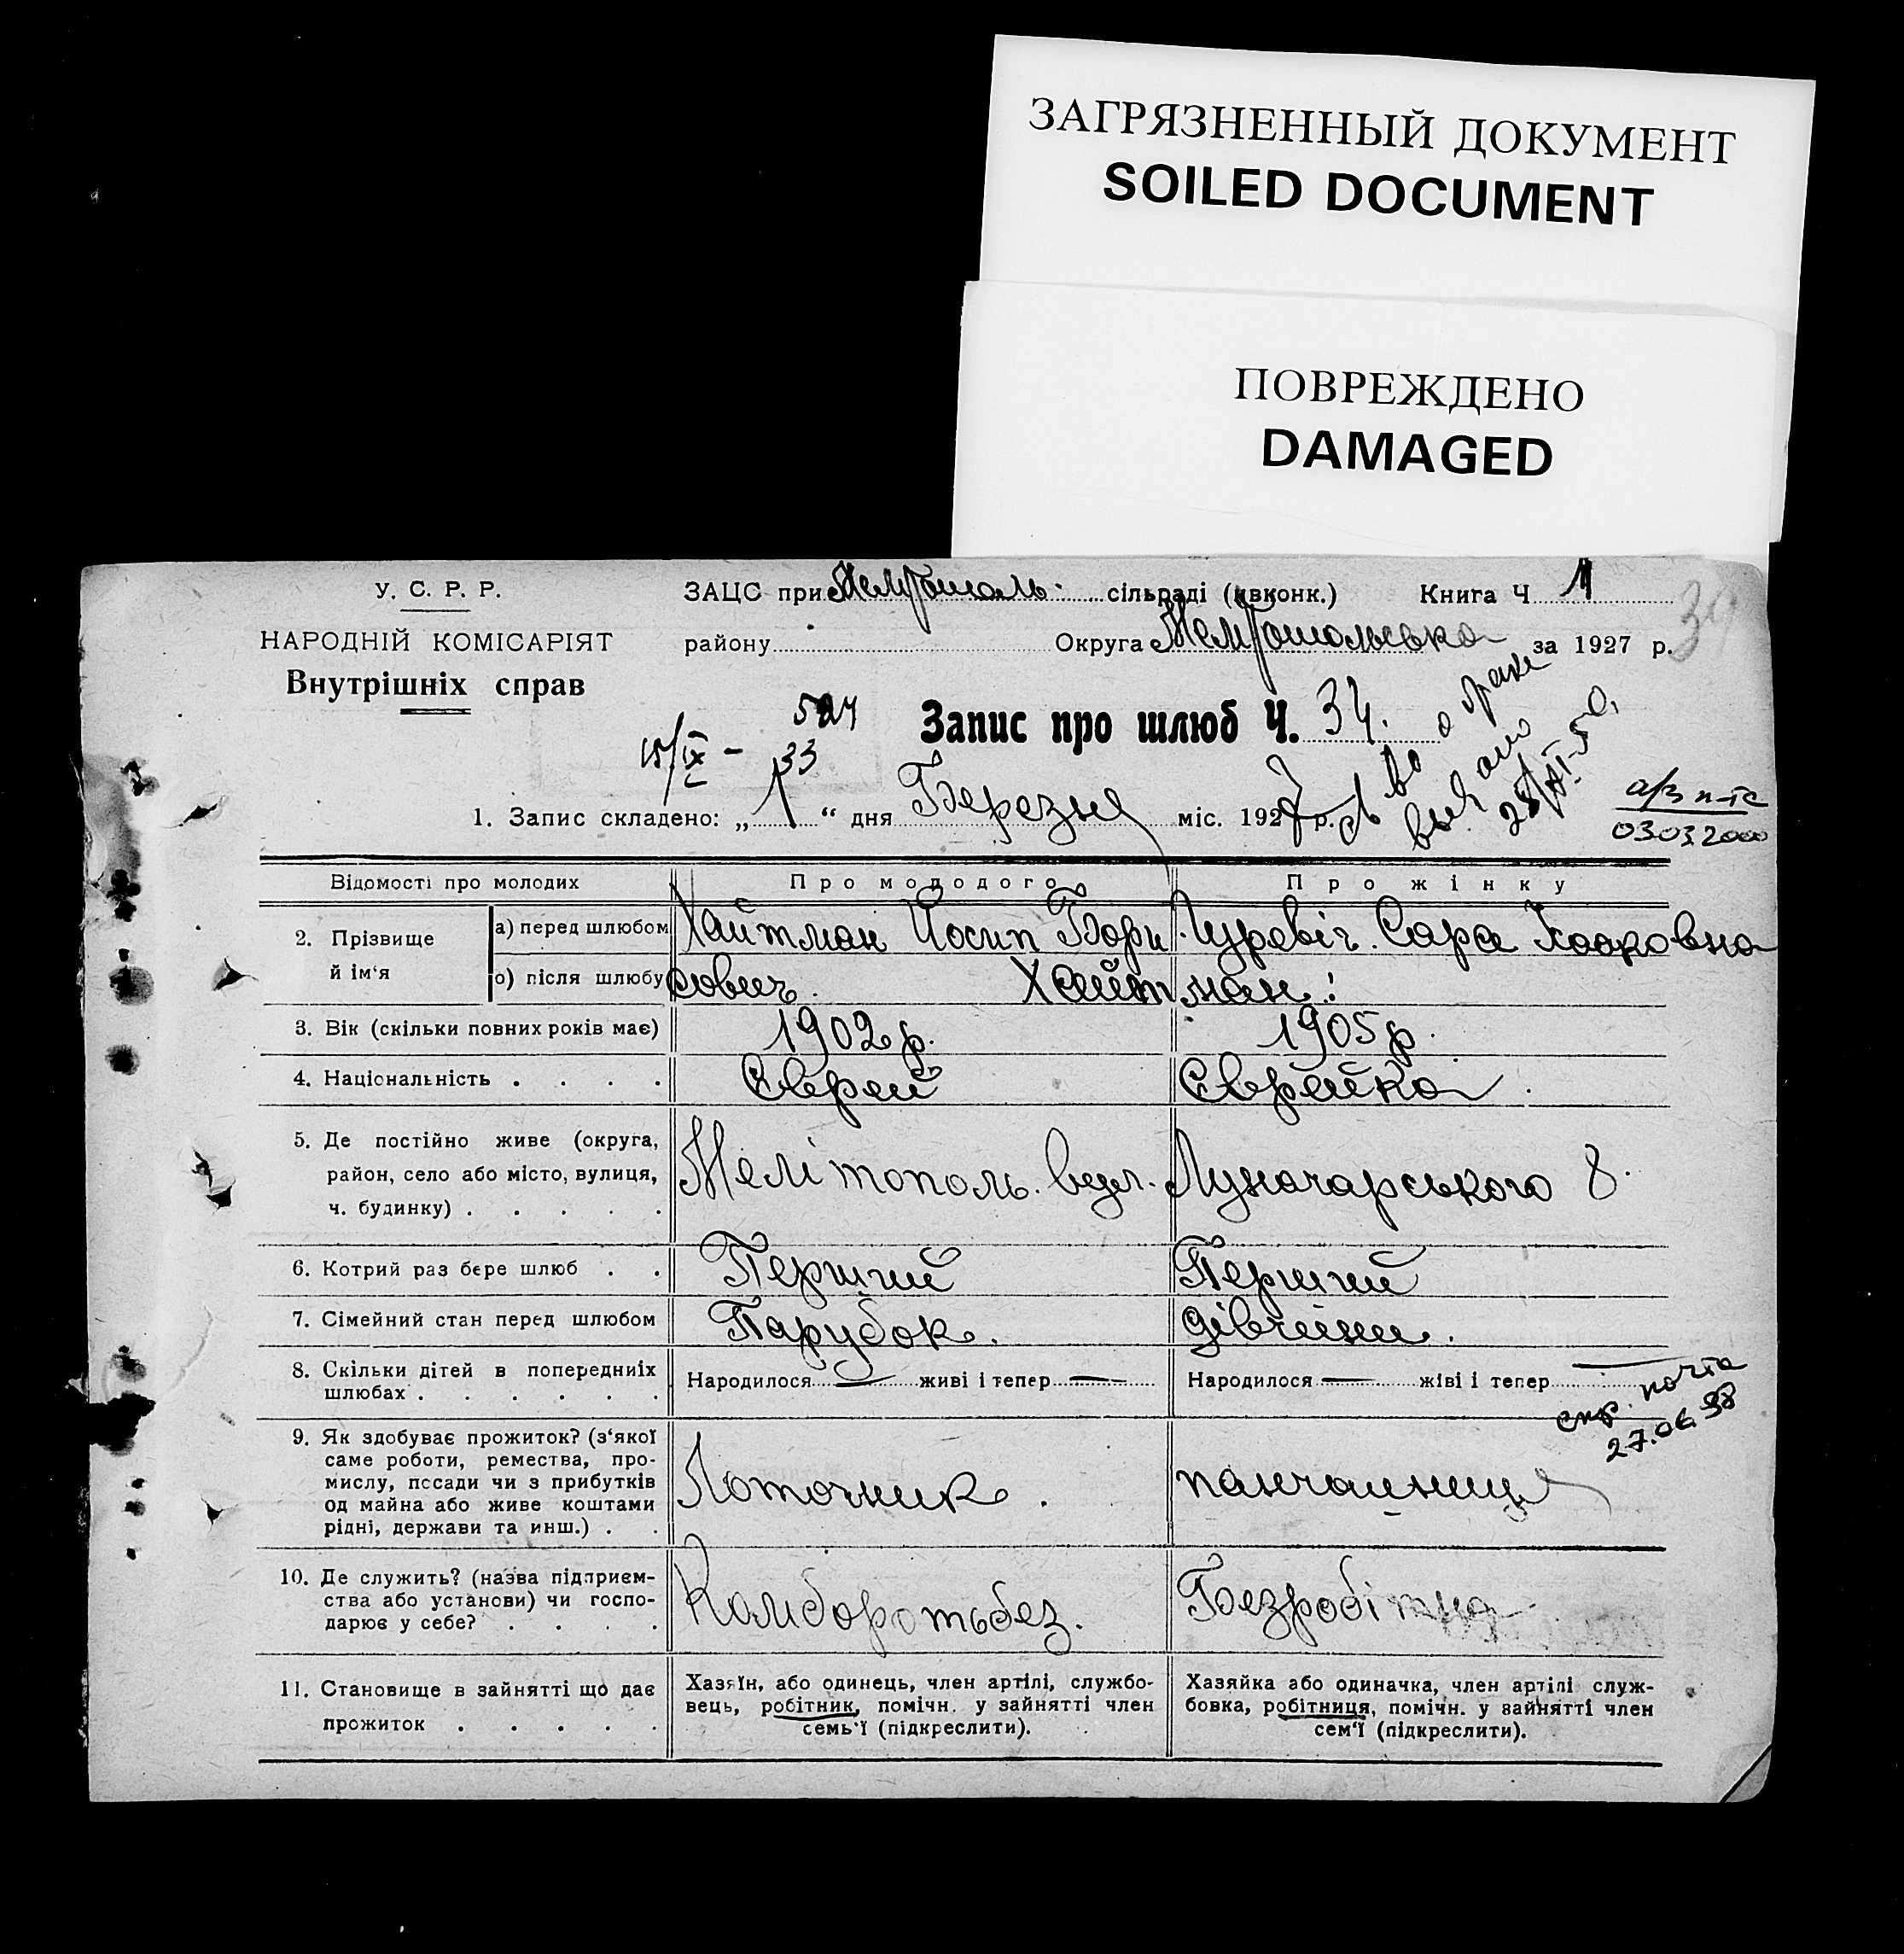 ЗАГРЯЗНЕННЫЙ ДОКУМЕНТ
SOILED DOCUMENT
ПОВРЕЖДЕНО
DAMAGED
У. С. Р. Р.
НАРОДНІЙ КОМІСАРІЯТ
Внутрішніх справ
ЗАЦС при Мелітополь. сільраді (ивконк.) Книга Ч 1
району Округа Мелітопольська за 1927 р. 34
Запис про шлюб Ч. 34.
15/IX - 33
св во о браке
выдано
25/XI-50.
1. Запис складено: „ 1 “ дня Березня міс. 1927 р.
03.03.2000
Відомості про молодих
Про молодого
Про жінку
2. Прізвище й ім‘я
а) перед шлюбом Хайтман Йосип Бори Гуревіч. Сара
о) після шлюбу сович. Хайтман.
3. Вік (скільки повних років має) 1902 р. 1905 р.
4. Національність . . . . Єврей Єврейка.
5. Де постійно живе (округа, район, село або місто, вулиця, ч. будинку) . . . . . Мелітополь. вул. Луначарського 8.
6. Котрий раз бере шлюб . . Перший Перший
7. Сімейний стан перед шлюбом Парубок. дівчина.
8. Скільки дітей в попередніх шлюбах . . . . . . Народилося — живі і тепер — Народилося — жіві і тепер —
почта
27.06.98
9. Як здобуває прожиток? (з‘якої саме роботи, ремества, промислу, посади чи з прибутків од майна або живе коштами рідні, держави та инш.) . . Лоточник. панчашниця
10. Де служить? (назва підприємства або установи) чи господарює у себе? . . . . Комборотьбез. Безробітна
11. Становище в зайнятті що дає прожиток . . . . .
Хазяїн, або одинець, член артілі, службовець, робітник, помічн. у зайнятті член семь‘ї (підкреслити).
Хазяйка або одиначка, член артілі службовка, робітниця, помічн. у зайнятті член сем‘ї (підкреслити).